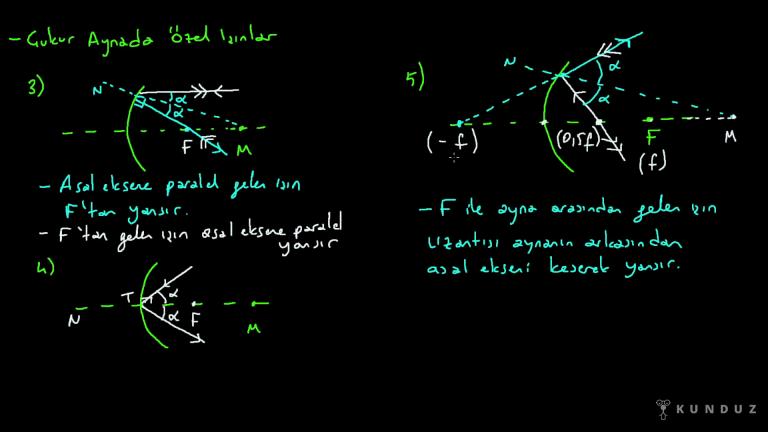 - Çukur Aynada Özel Işınlar
3)
N
α
α
F
M
- Asal eksene paralel gelen ışın
F'tan yansır.
- F'tan gelen ışın asal eksene paralel
yansır
4)
T
α
α
N
F
M
5)
N
α
α
(-f)
(0,5f)
F
(f)
M
- F ile ayna arasından gelen ışın
uzantısı aynanın arkasından
asal ekseni keserek yansır.
KUNDUZ